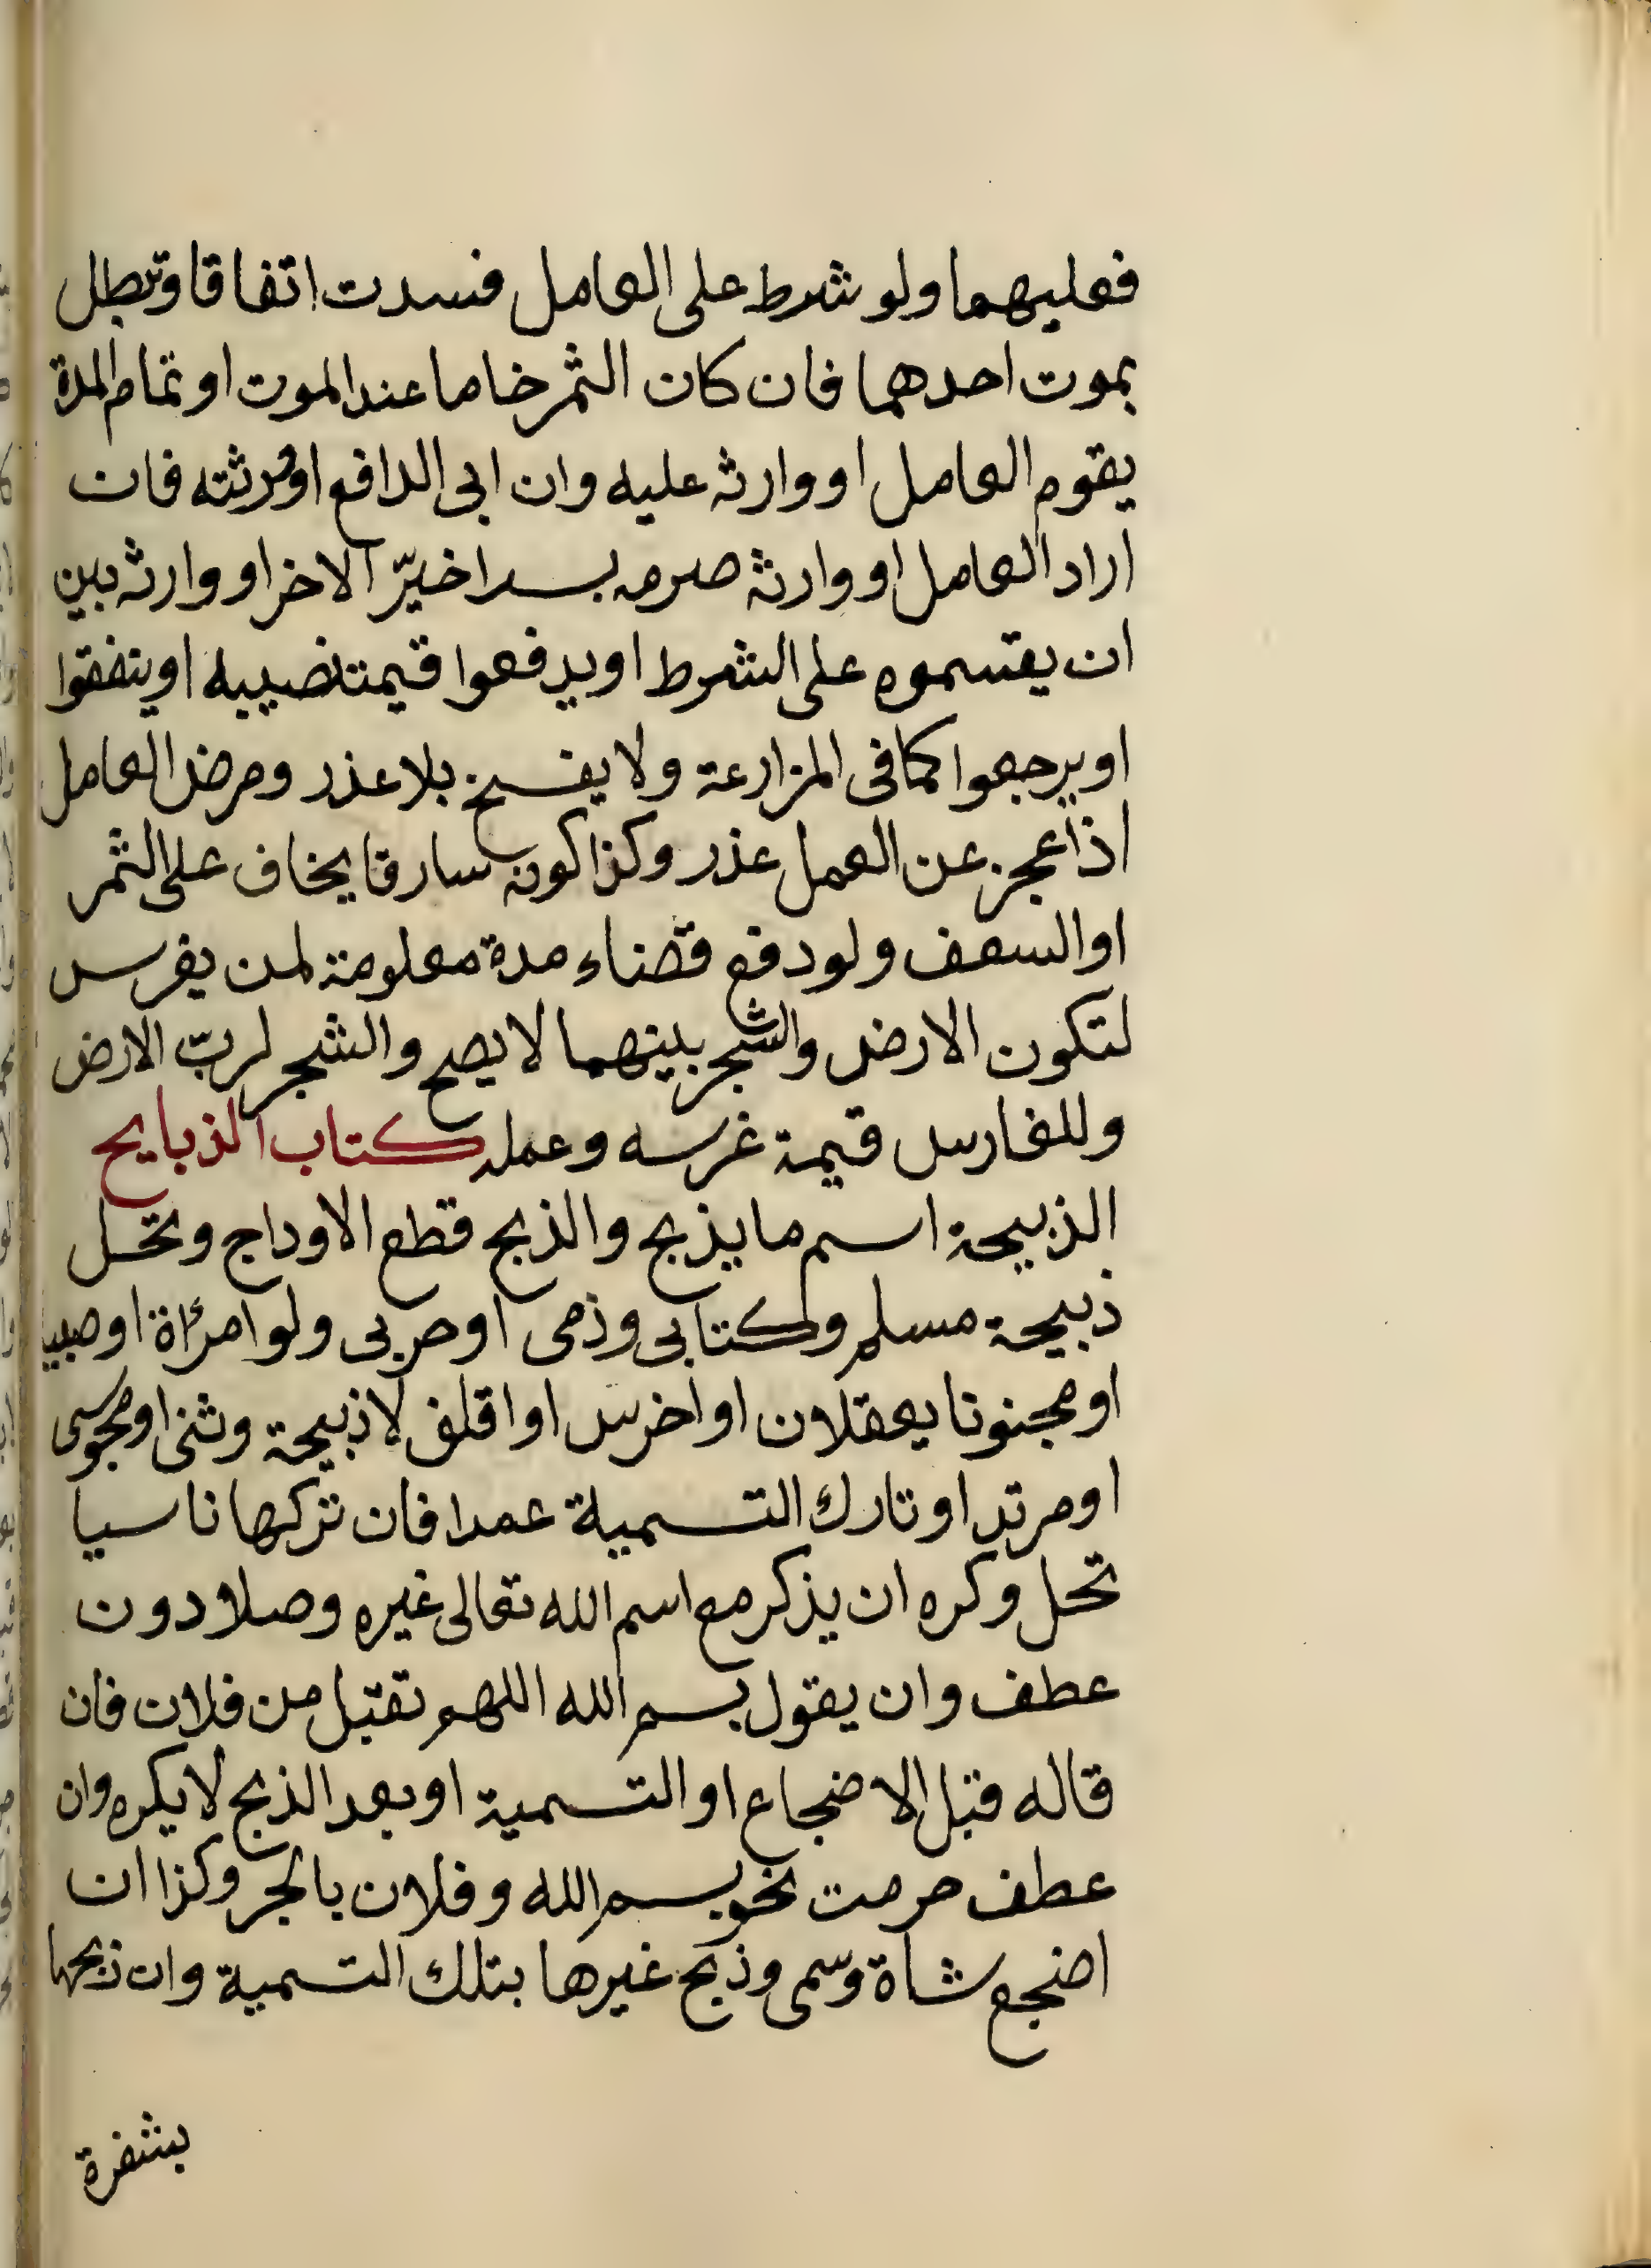 فعليهما ولو شرط على العامل فسدت اتفاقا وتبطل
بموت احدهما فان كان الثمر خاما عند الموت او تمام المدة
يقوم العامل او وارثه عليه وان ابى الدافع او ورثته فان
اراد العامل او وارثه صرمه بسرا خيّر الاخر او وارثه بين
ان يقتسموه على الشرط او يدفعوا قيمة نصيبه او ينفقوا
او يرجعوا كما فى المزارعة ولا يفسخ بلا عذر ومرض العامل
اذا عجز عن العمل عذر وكذا كونه سارقا يخاف على الثمر
او السعف ولو دفع فضاء مدة معلومة لمن يغرس
لتكون الارض والشجر بينهما لا يصح والشجر لربّ الارض
وللغارس قيمة غرسه وعمله كتاب الذبايح
الذبيحة اسم ما يذبح والذبح قطع الاوداج وتحل
ذبيحة مسلم وكتابى وذمى او حربى ولو امرئاة او صبيا
او مجنونا يعقلان او اخرس او اقلف لا ذبيحة وثنى او مجوسى
او مرتد او تارك التسمية عمدا فان تركها ناسيا
تحل وكره ان يذكر مع اسم الله تعالى غيره وصلا دون
عطف وان يقول بسم الله اللهم تقبّل من فلان فان
قاله قبل الاضجاع او التسمية او بعد الذبح لا يكره وان
عطف حرمت نحو بسم الله وفلان بالجر وكذا ان
اضجع شاة وسمى وذبح غيرها بتلك التسمية وان ذبحها
بشفرة